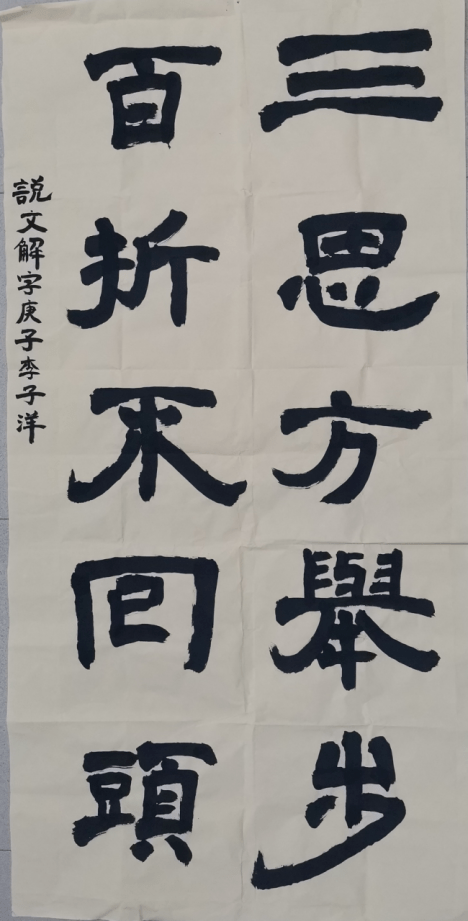 三思方舉步
百折不回頭
説文解字庚子李子洋